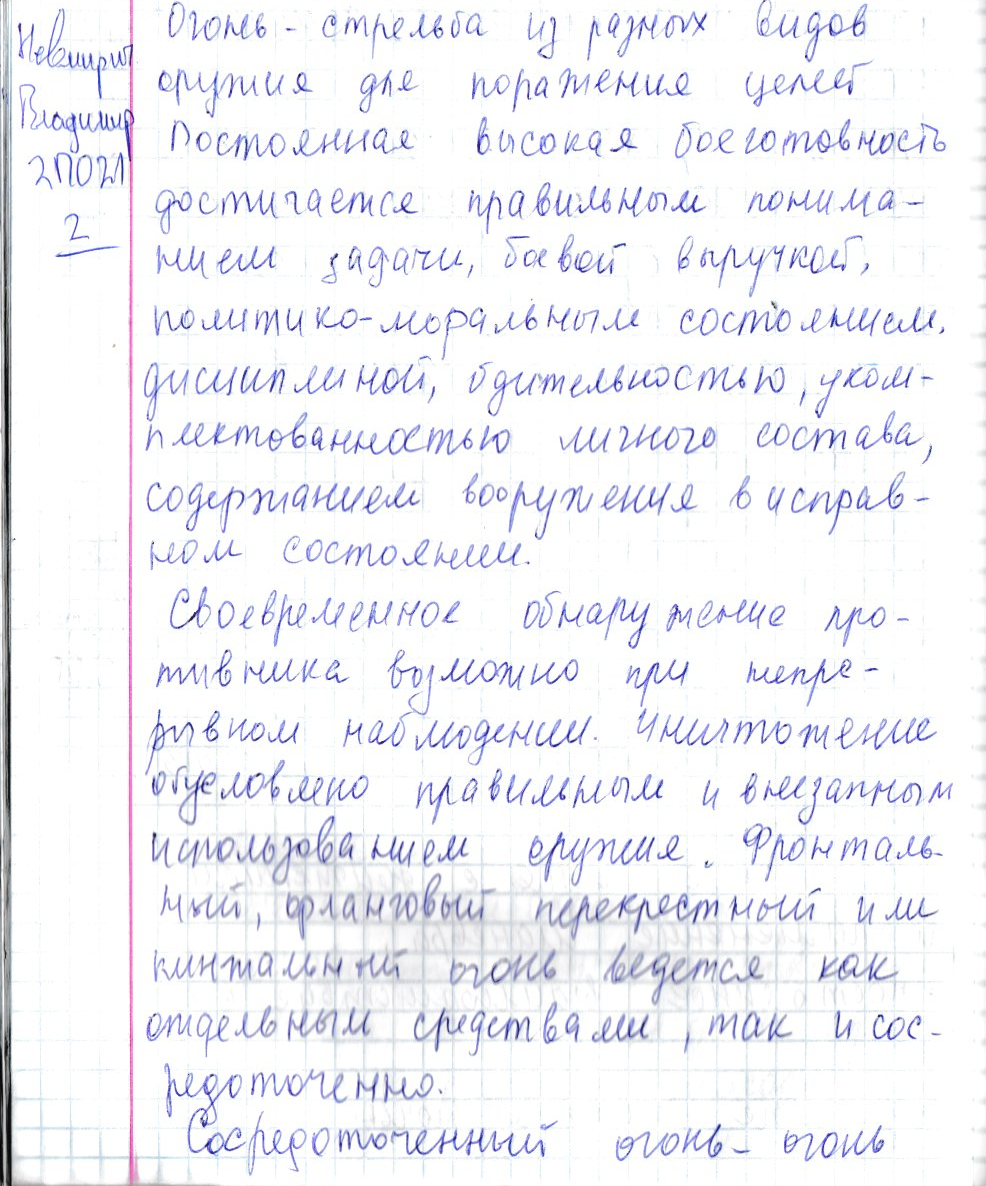 Владимир
2ПО21
2
Огонь - стрельба из разных видов
оружия для поражения целей
Постоянная высокая боеготовность
достигается правильным понима-
нием задачи, боевой выручкой,
политико-моральным состоянием,
дисциплиной, бдительностью, уком-
плектованностью личного состава,
содержанием вооружения в исправ-
ном состоянии.
Своевременное обнаружение про-
тивника возможно при непре-
рывном наблюдении. Уничтожение
обусловлено правильным и внезапным
использованием оружия. Фронталь-
ный, фланговый перекрестный или
кинжальный огонь ведется как
отдельным средствами, так и сос-
редоточенно.
Сосредоточенный огонь - огонь